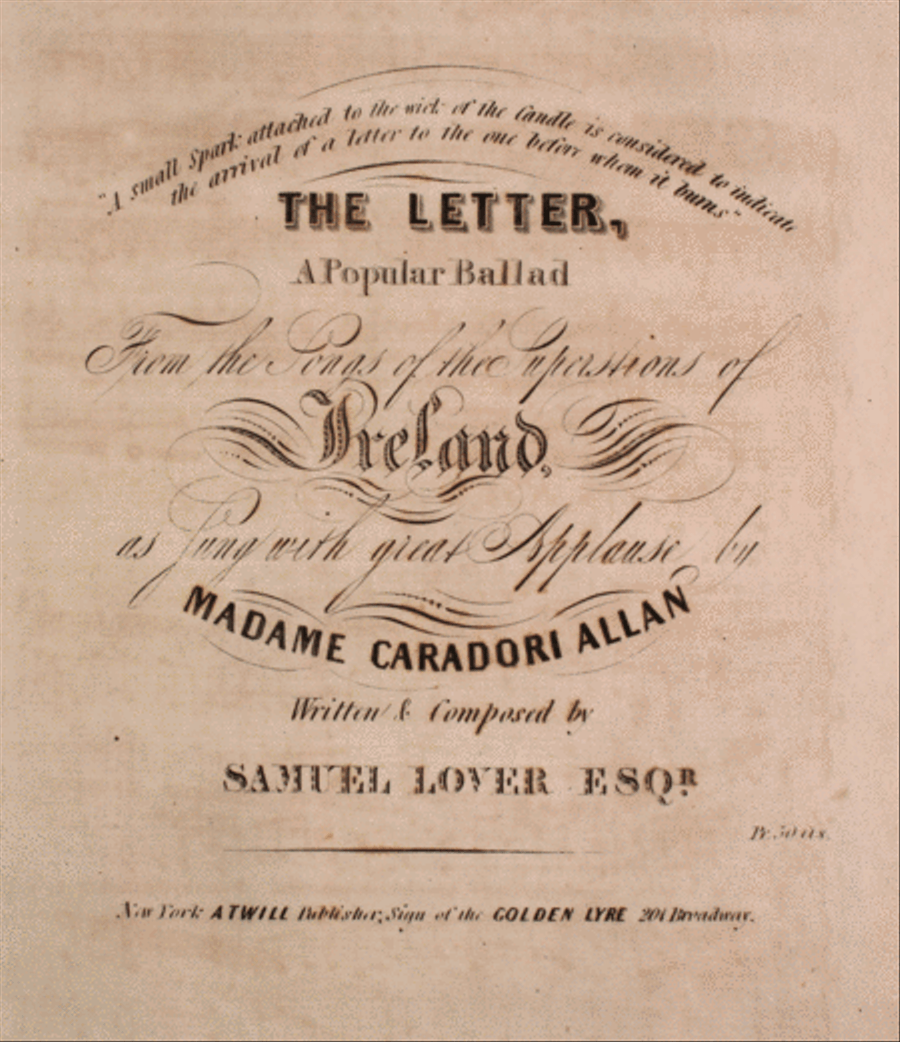 "A small Spark attached to the wick of the Candle is considered to indicate
the arrival of a letter to the one before whom it burns"
THE LETTER,
A Popular Ballad
From the Songs of the Superstions of
Ireland,
as Sung with great Applause by
MADAME CARADORI ALLAN
Written & Composed by
SAMUEL LOVER ESQR
Pr. 50 cts.
New York ATWILL Publisher, Sign of the GOLDEN LYRE 201 Broadway.